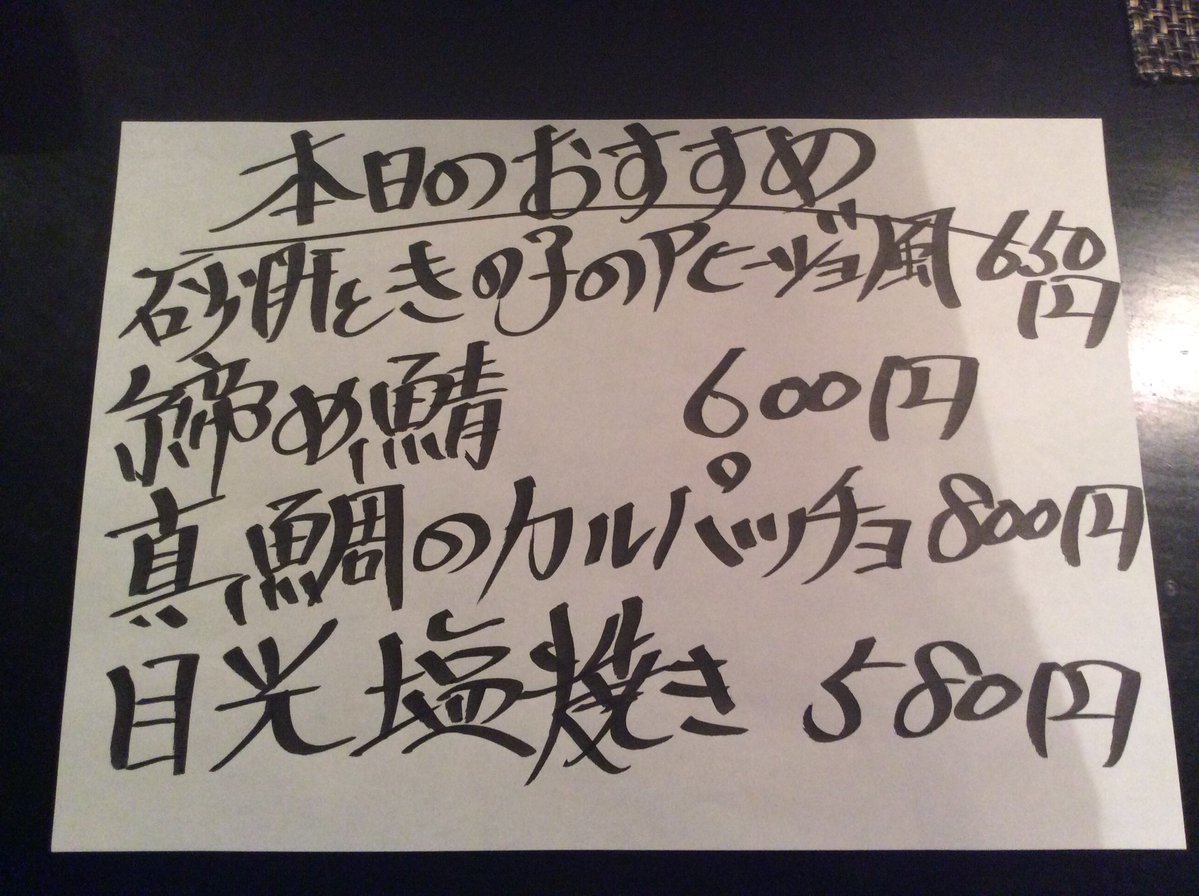 本日のおすすめ
砂肝ときの子のアヒージョ風 650円
締め鯖 600円
真鯛のカルパッチョ 800円
目光塩焼き 580円